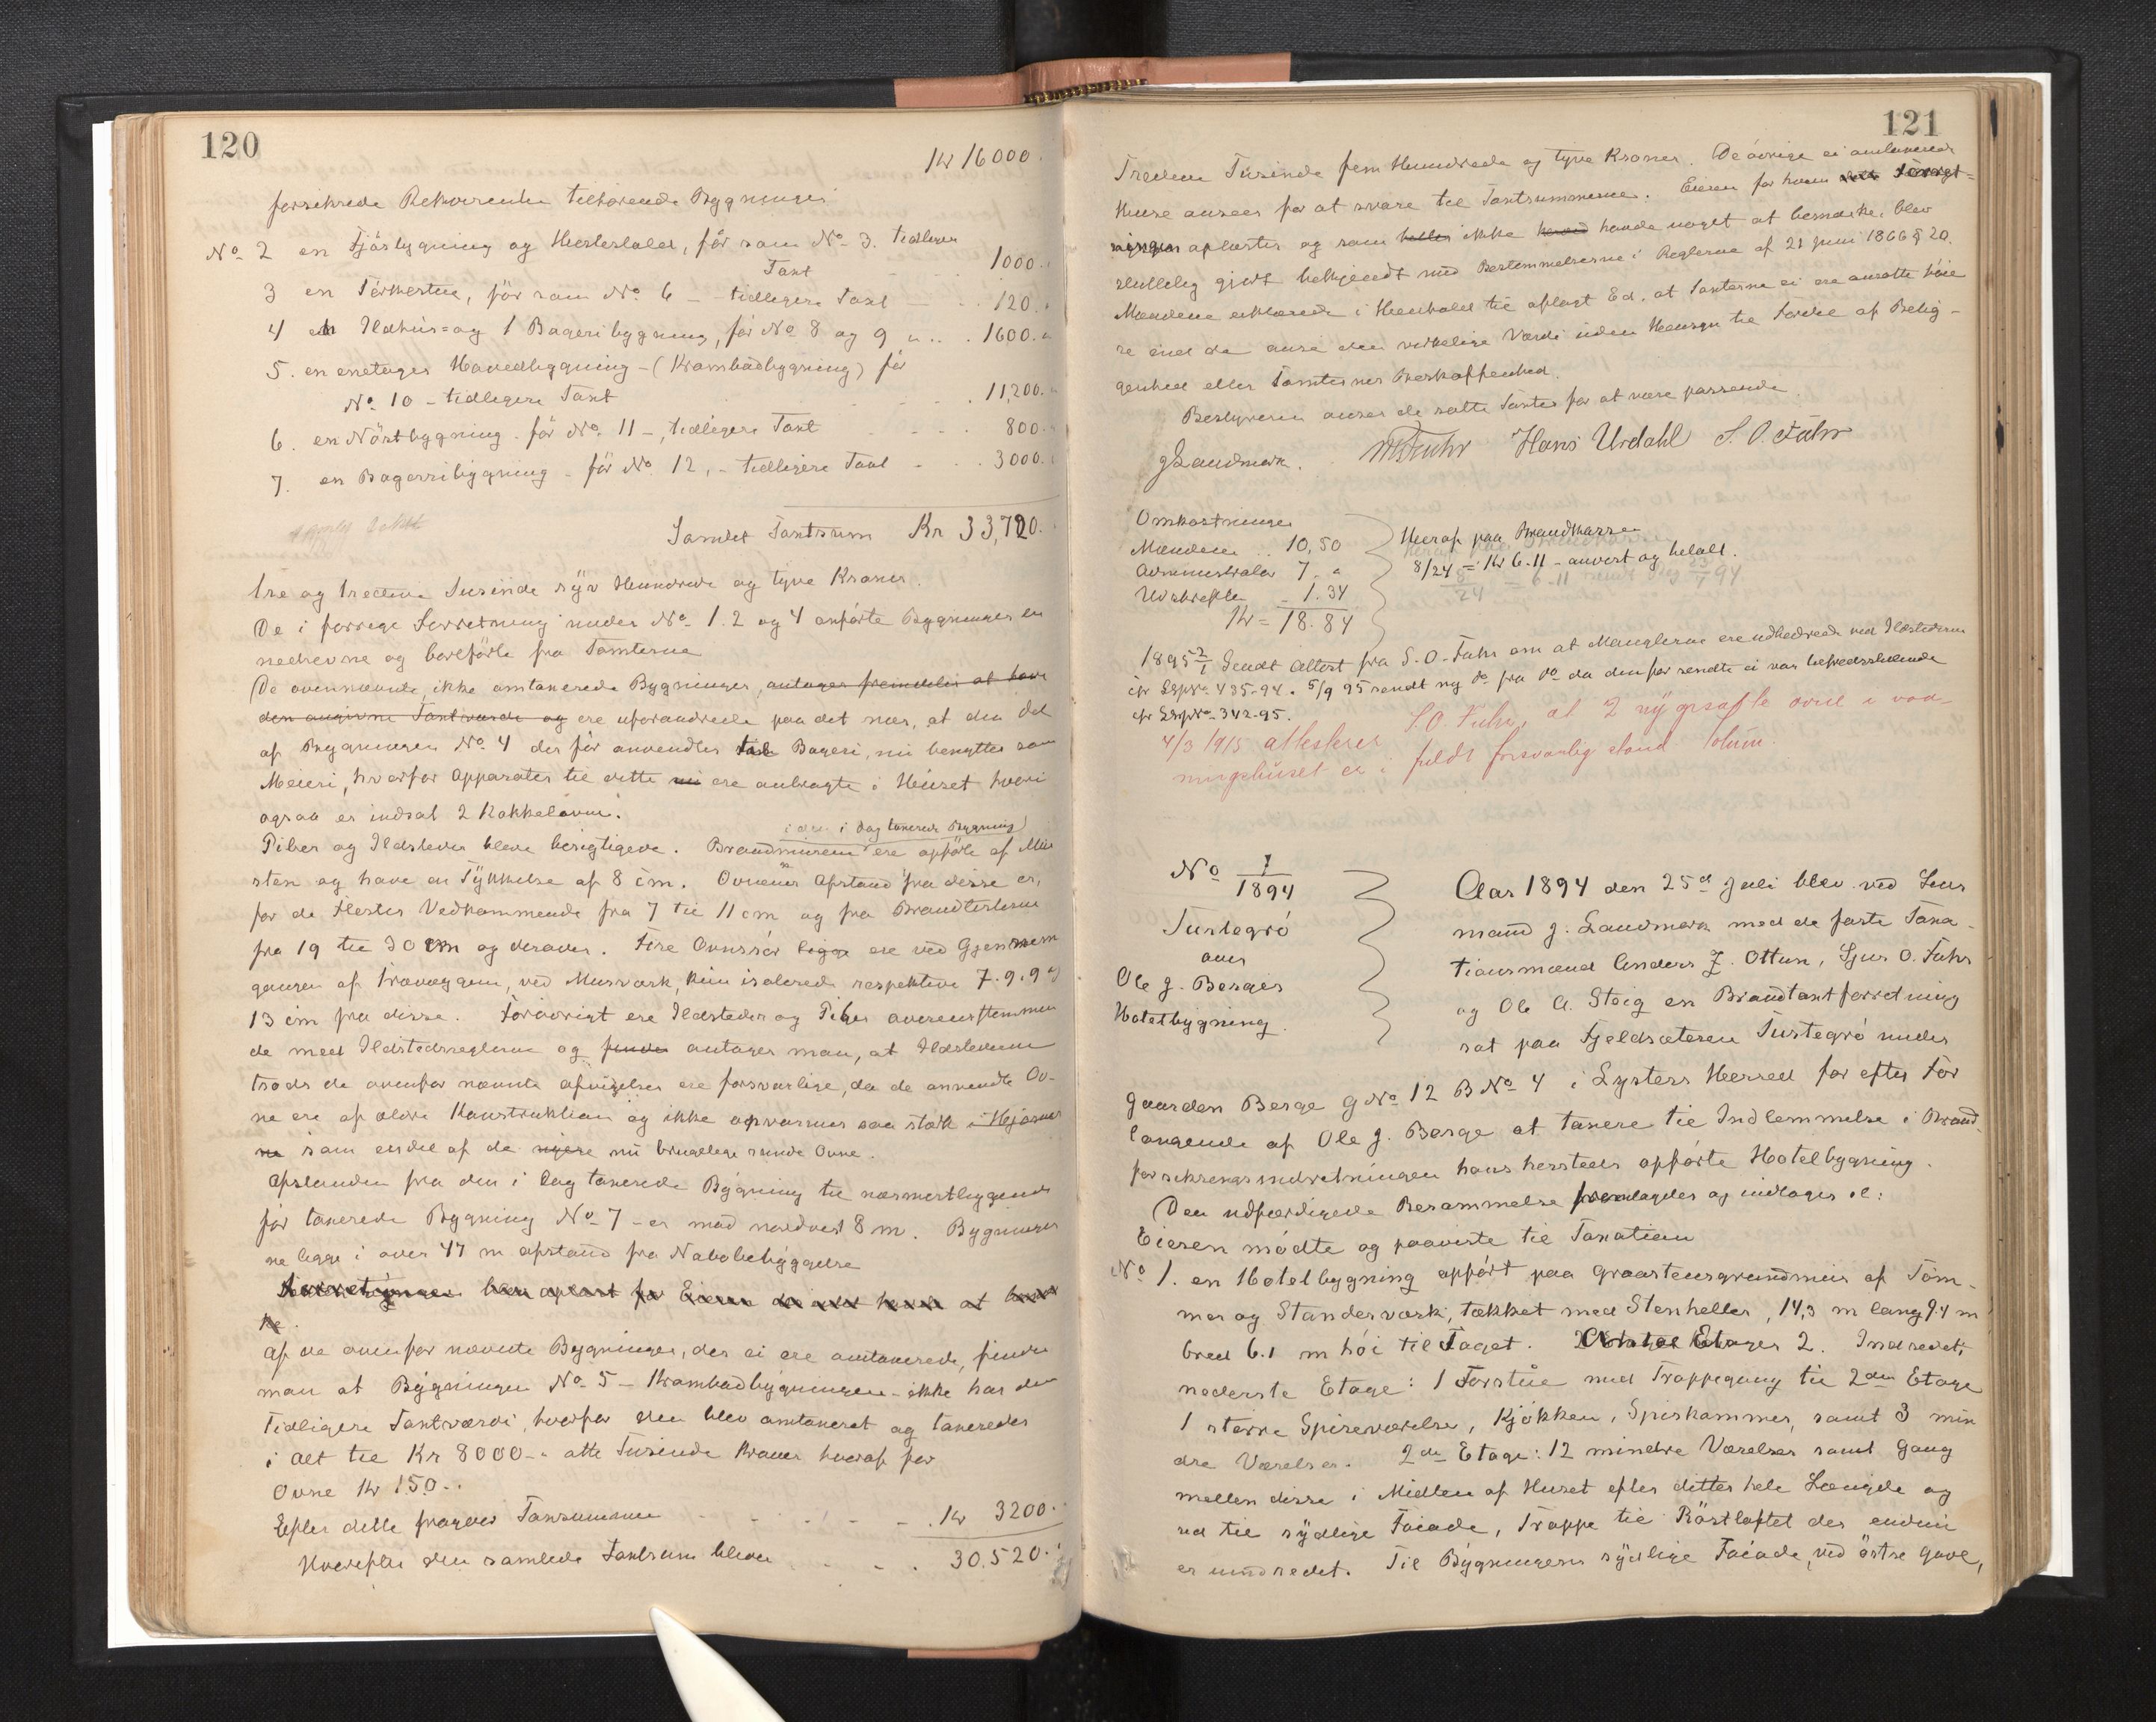 120
Kr 16000.
forsikrede Rekvirenten tilhørende Bygninger
No 2 en Fjøsbygning og Hestestald, før som No 3. tidligere
Taxt 1000.
3 en Tørkestue, før som No 6 - tidligere Taxt 120.
4 en Ildhus= og 1 Bageribygning, før No 8 og 9 " .. 1600.
5. en enetages Hovedbygning - (Krambodbygning) før
No 10 - tidligere Taxt 11,200.
6. en Nøstbygning før No 11 -, tidligere Taxt 800.
7. en Bageribygning - før No 12, - tidligere Taxt 3000.
Samlet Taxtsum Kr 33,720.
tre og tredive Tusinde syv Hundrede og tyve Kroner.
De i forrige Forretning under No 1. 2 og 4 anførte Bygninger er
nedrevne og bortførte fra Tomterne
De ovennævnte, ikke omtaxerede Bygninger, antages fremdeles at have
den angivne Taxtværdi og ere uforandrede paa det nær, at den Del
af Bygningen No 4 der før anvendtes til Bageri, nu benyttes som
Meieri, hvorfor Apparater til dette ere anbragte i Huset hvori
ogsaa er indsat 2 Kakkelovne.
i den i dag taxerede Bygning
Piber og Ildsteder bleve besigtigede. Brandmurene ere opførte af Mur
sten og have en Tykkelse af 8 cm. Ovnenes Afstand fra disse er,
for de Flestes Vedkommende fra 7 til 11 cm og fra Brandterskelen
fra 19 til 30 cm og derover. Fire Ovnsrør ligge ere ved Gjennem
gangen af Trævæggene, ved Murværk, kun isolerede respektive 7. 9. 9 og
13 cm fra disse. Forøvrigt ere Ildsteder og Piber overensstemmen
de med Ildstedsreglerne og finder antager man, at Ildstederne
trods de ovenfor nævnte afvigelser ere forsvarlige, da de anvendte Ov-
ne ere af ældre Konstruktion og ikke opvarmes saa stærkt i Hjørner
ne som endel af de nyere nu brugelige runde Ovne.
Afstanden fra den i Dag taxerede Bygning til nærmestliggende
før taxerede Bygning No 7 - er mod nordvest 8 m. Bygninger
ne ligge i over 47 m afstand fra Nabobebyggelse
Forretningen blev oplæst for Eieren
ke.
Af de ovenfor nævnte Bygninger, der ei ere omtaxerede, finder
man at Bygningen No 5 - Krambodbygningen - ikke har den
Tidligere Taxtværdi, hvorfor den blev omtaxeret og taxeredes
i alt til Kr 8000 - otte Tusinde Kroner hvoraf for
Ovne Kr 150..
Efter dette fragaar Taxsummen Kr 3200.
Hvorefter den samlede Taxtsum bliver 30.520.
121
Tredive Tusinde fem Hundrede og tyve Kroner. De øvrige ei omtaxerede
Huse ansees for at svare til Taxtsummerne. Eieren for hvem Forret=
ningen oplæstes og som ikke havde noget at bemærke, blev
skuttelig gjort bekjendt med Bestemmelserne i Reglerne af 21 juni 1866 § 20.
Mændene erklærede i Henhold til aflagt Ed, at Taxterne ei ere ansatte høie
re end de anse den virkelige Værdi uden Hensyn til Fordel af Belig-
genhed eller Tomternes Beskaffenhed.
Bestyreren anser de satte Taxter for at være passende.
J Landmark. Fuhr Hans Urdahl S. O. Fuhr
Omkostninger
Mændene .. 10,50
Administrator 7. "
Udskrifter 1.34
Kr = 18.84
Heraf paa Brandkassen
8/24 = Kr 6.11 - anvist og betalt.
8/24 = 6.11
1895 2/1 Sendt Attest fra S. O. Fuhr om at Manglerne ere udbedrede ved Ildstederne
cfr 435-94. 5/9 95 sendt ny do fra do da den før sendte ei var tilfredsstillende
cfr 342-95.
4/3 1915 attesterer S. O. Fuhr, at 2 ovne i vaa-
ningshuset er i fuldt forsvarlig stand
No 1/1894
Turtegrø
over
Ole J. Berges
Hotelbygning.
Aar 1894 den 25de Juli blev ved Lens
mand J. Landmark med de faste Taxa-
tionsmænd Anders J. Ottum, Sjur O. Fuhr
og Ole A. Steig en Brandtaxtforretning
sat paa Fjeldsæteren Turtegrø under
gaarden Berge G No 12 B No 4 i Lysters Herred for efter For
langende af Ole J. Berge at taxere til Indlemmelse i Brand-
forsikringsindretningen hans hersteds opførte Hotelbygning.
Den udfærdigede Berammelse fremlagdes og indtages sl:
Eieren mødte og paaviste til Taxation
No 1. en Hotelbygning opført paa Graastensgrundmur af Tøm-
mer og Standerværk, tækket med Stenheller, 14,3 m lang 9.4 m
bred 6.1 m høi til Taget. Antal Etager 2. Indredet;
nederste Etage: 1 Forstue med Trappegang til 2den Etage
1 større Spiseværelse, Kjøkken, Spiskammer, samt 3 min
dre Værelser. 2den Etage: 12 mindre Værelser samt Gang
mellem disse i Midten af Huset efter dettes hele Længde og
ud til sydlige Facade, Trappe til Røstloftet der endnu
er uindredet. Til Bygningens sydlige Facade, ved østre Gavl,